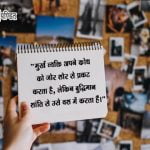 "मुर्ख व्यक्ति अपने क्रोध
को जोर शोर से प्रकट
करता है, लेकिन बुद्धिमान
शांति से उसे वश में करता है।"